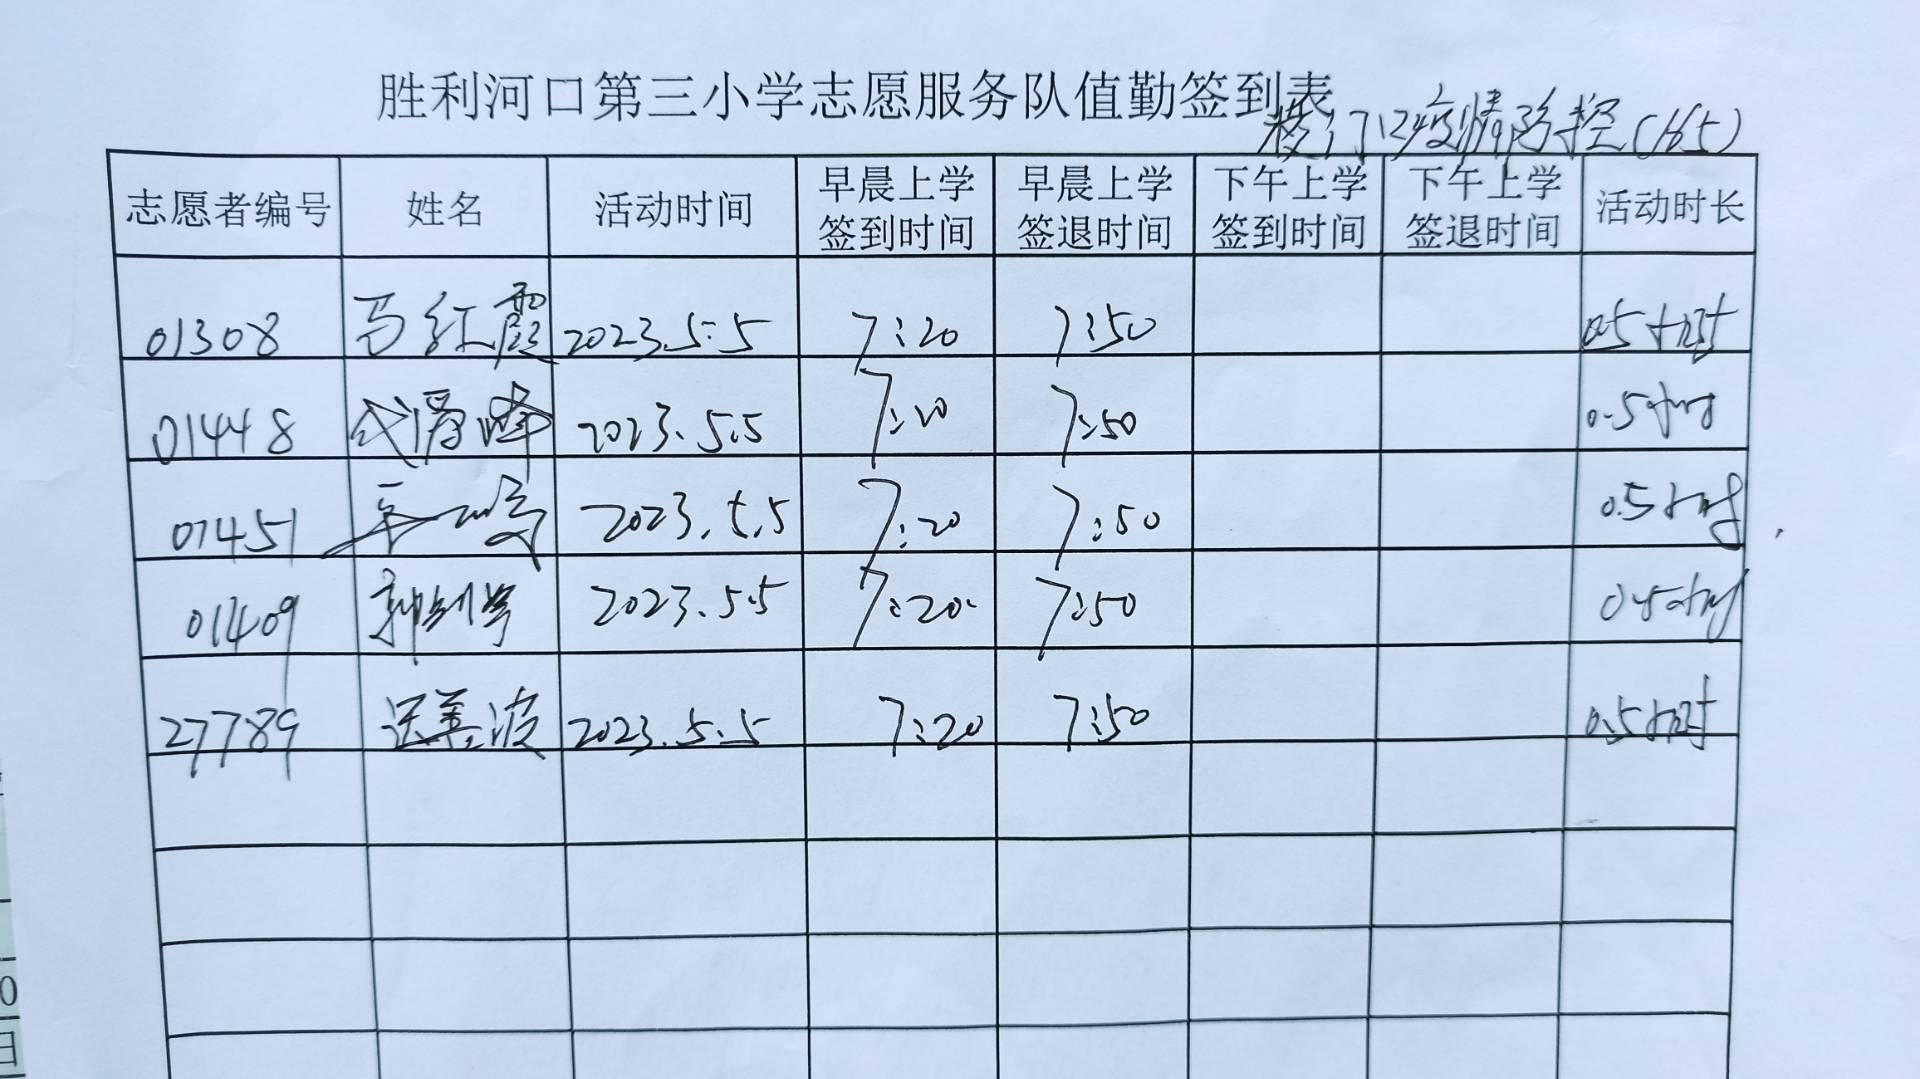 胜利河口第三小学志愿服务队值勤签到表
校门口疫情防控(165)
志愿者编号 姓名 活动时间 早晨上学签到时间 早晨上学签退时间 下午上学签到时间 下午上学签退时间 活动时长
01308 马红霞 2023.5.5 7:20 7:50 0.5小时
01448 2023.5.5 7:20 7:50 0.5小时
01451 2023.5.5 7:20 7:50 0.5小时
01409 2023.5.5 7:20 7:50 0.5小时
27789 善波 2023.5.5 7:20 7:50 0.5小时
0
日